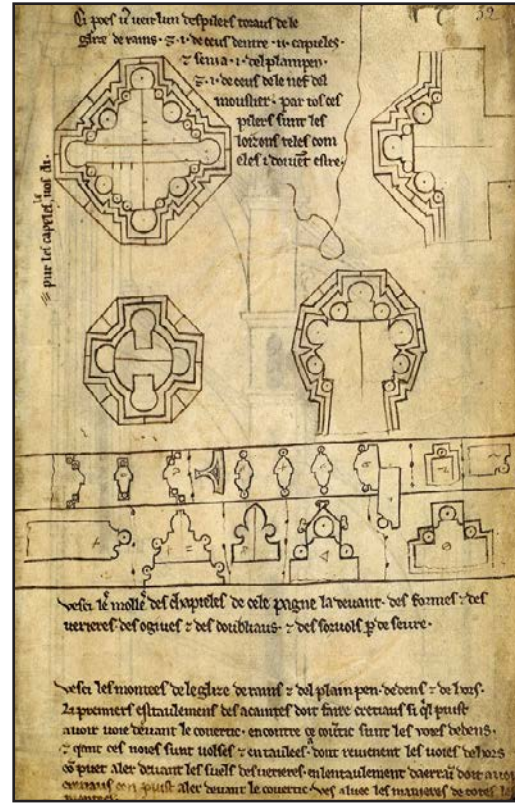 32
Ci poes ũ veir lun des pilers toraus de le
glize de rains · ⁊ · i · de ceus dentre · ii · capieles ·
⁊ sen i a · i · del plain pen ·
⁊ · i · de ceus de le nef del
moustier · par tos ces
pilers sunt les
loizons teles com
eles i doivēt estre ·
pur les capeles, vos di.
vesci le molle des chapieles de cele pagne la devant · des formes ⁊ des
verieres · des ogives ⁊ des doubliaus · ⁊ des sorvols p̃ de seure ·
vesci les montees de le glize de rains ⁊ del plain pen · dedens ⁊ de hors ·
Li premiers estaulemens des acaintes doit faire cretiaus si q̃l puist
avoir voie devant le covertic · encontre ce covertic sunt les voies dedens ·
⁊ qant ces voies sunt volses ⁊ entaulees · dont revienent les voies dehors
c̃o puet aler devant les suels des verieres · en lentaulement daerrain doit avoir
cretiaus con puist aler devant le covertic · ves aluec les manieres de totes les
montees ·